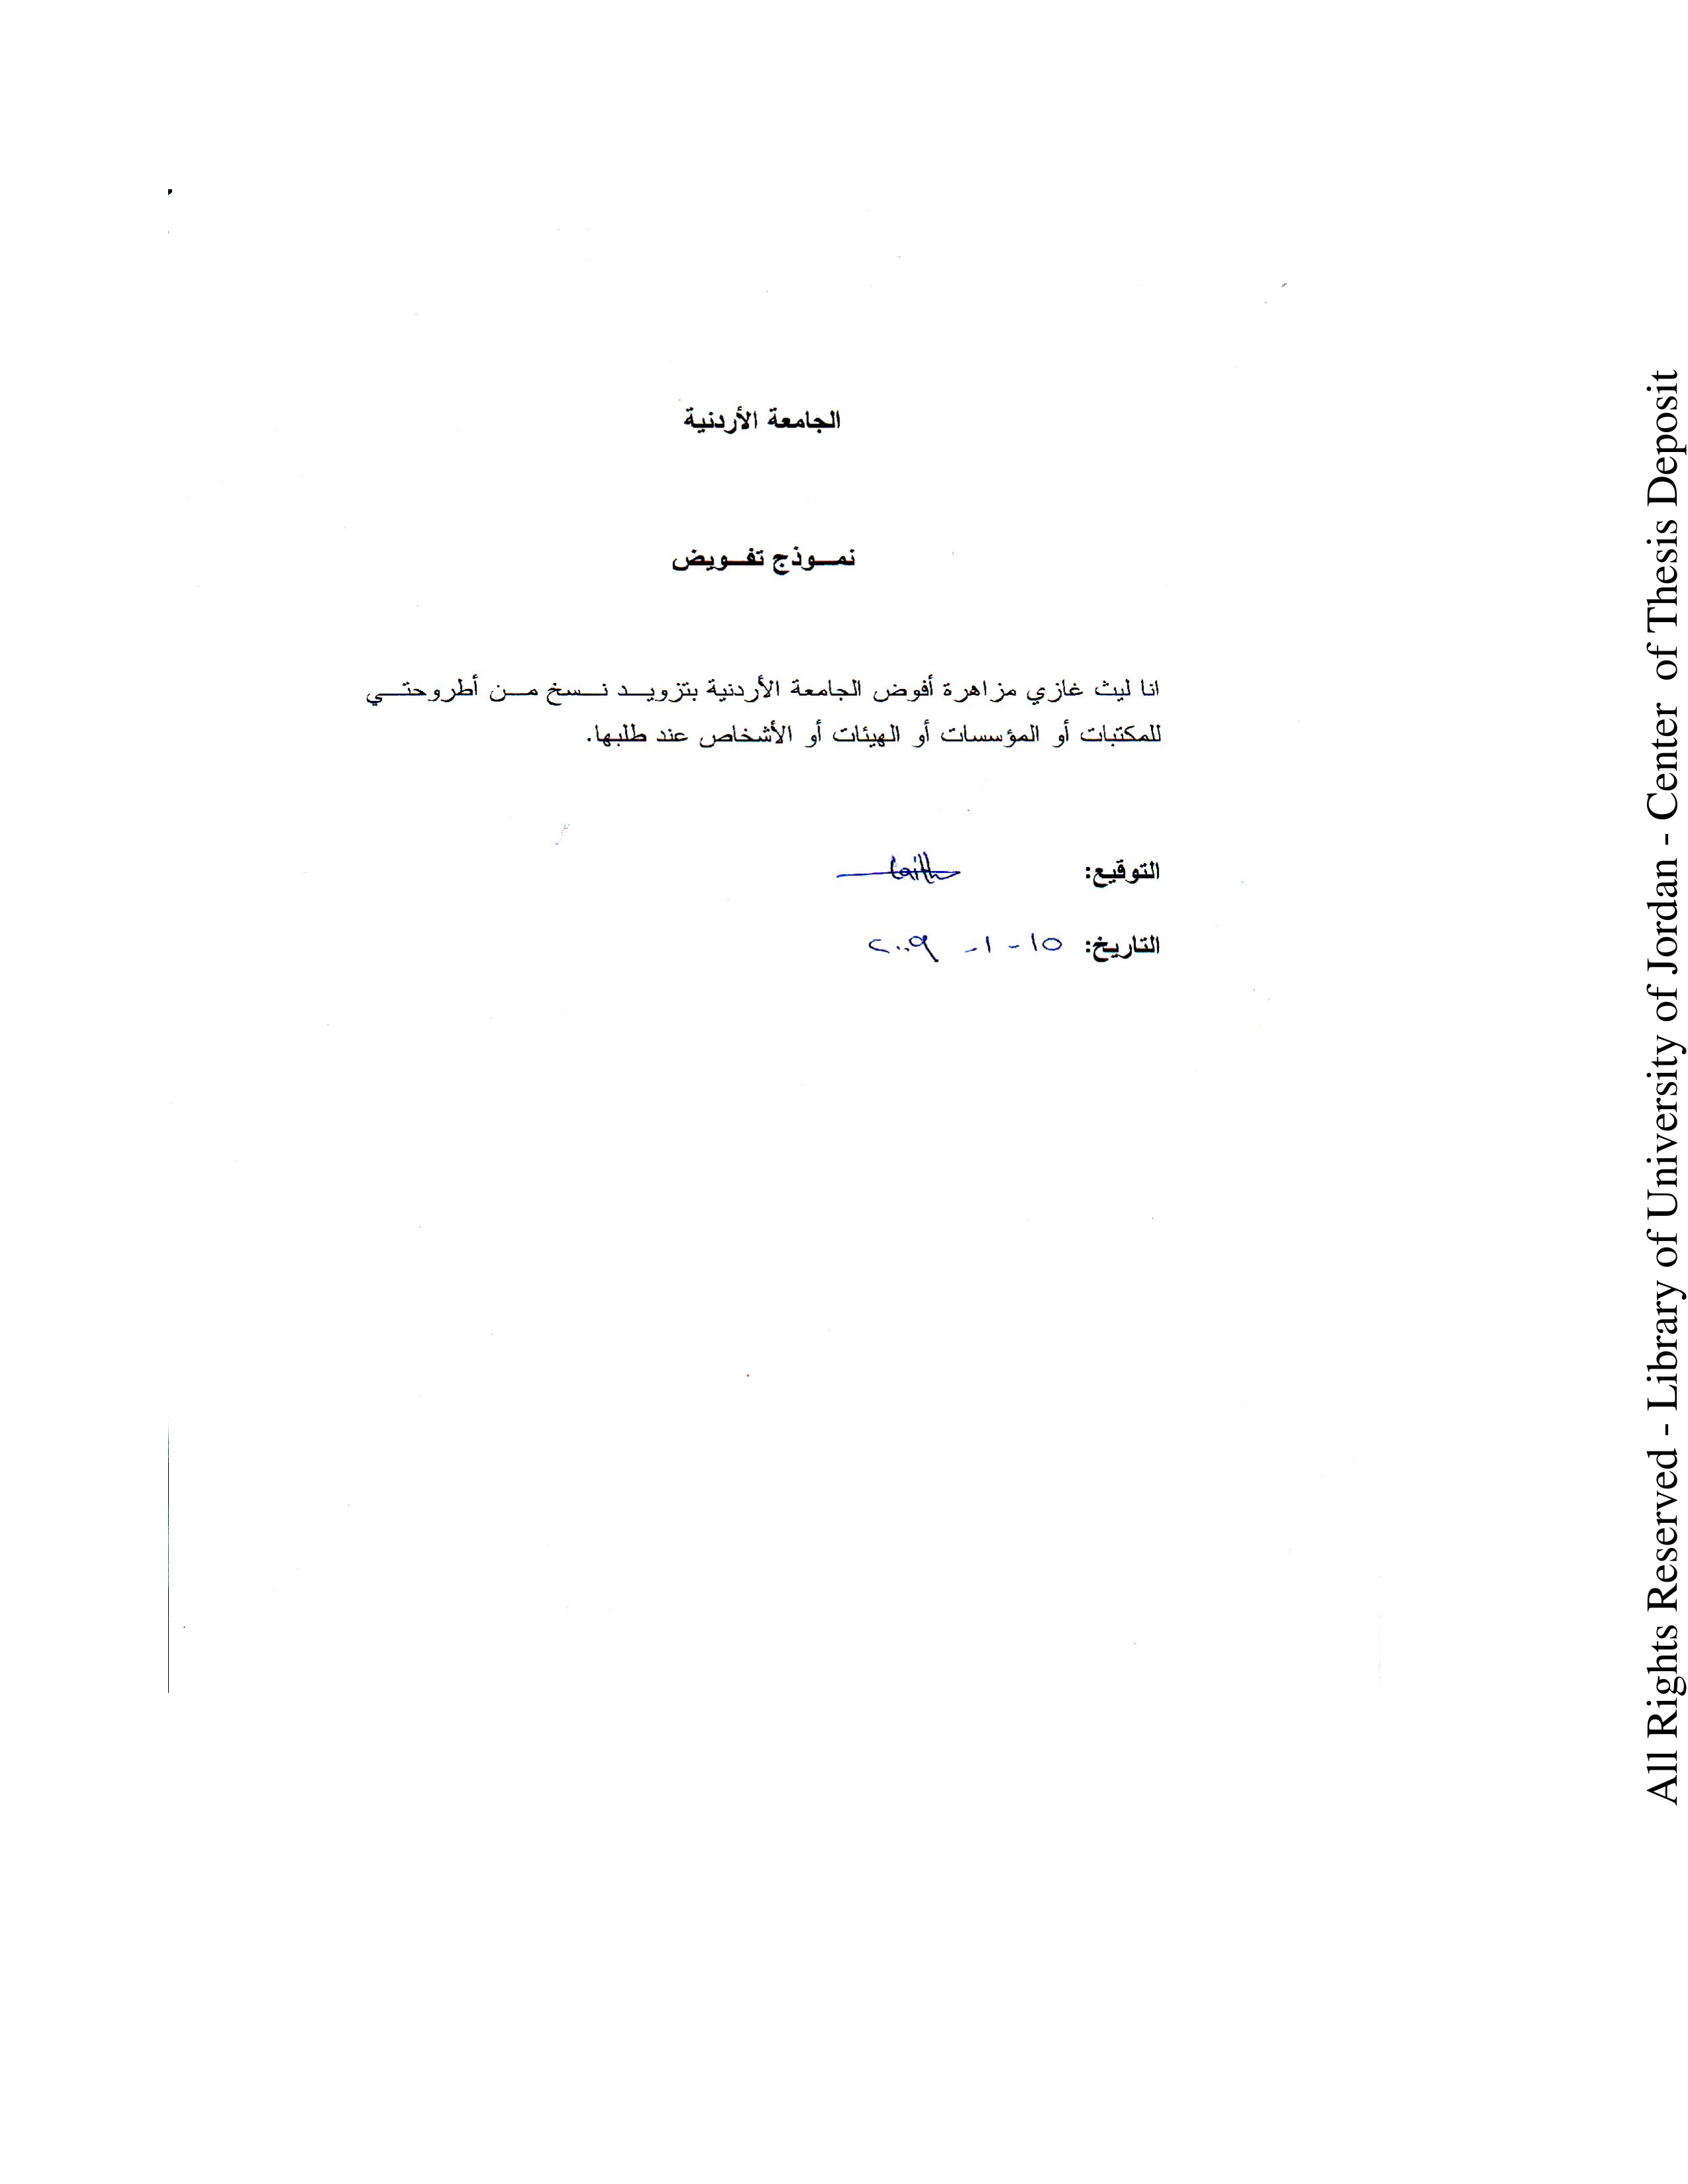 الجامعة الأردنية
نمـوذج تفـويض
انا ليث غازي مزاهرة أفوض الجامعة الأردنية بتزويـد نـسخ مـن أطروحتـي
للمكتبات أو المؤسسات أو الهيئات أو الأشخاص عند طلبها.
التوقيع: Laith
التاريخ: ١٥ - ١ - ٢٠٠٩
All Rights Reserved - Library of University of Jordan - Center of Thesis Deposit